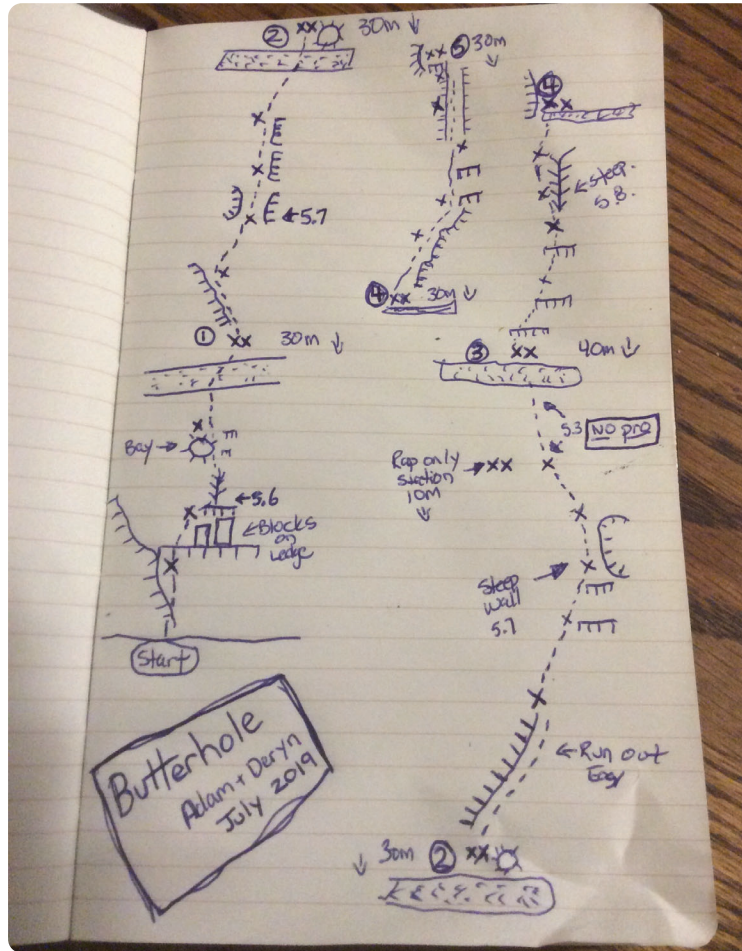 ② xx 30m ↓
x
x
x ← 5.7
x
① xx 30m ↓
x
Bay →
← 5.6
x
← Blocks
on
Ledge
x
Start
Butterhole
Adam + Deryn
July 2019
xx ⑤ 30m ↓
x
x
x
x
④ xx 30m ↓
④
xx
x
x ← Steep
5.8
x
x
③ xx 40m ↓
5.3 NO pro
Rap only → xx x
station
10m
↓
x
x
Steep →
wall
5.7
x
x
← Run out
Easy
↓ 30m ② xx